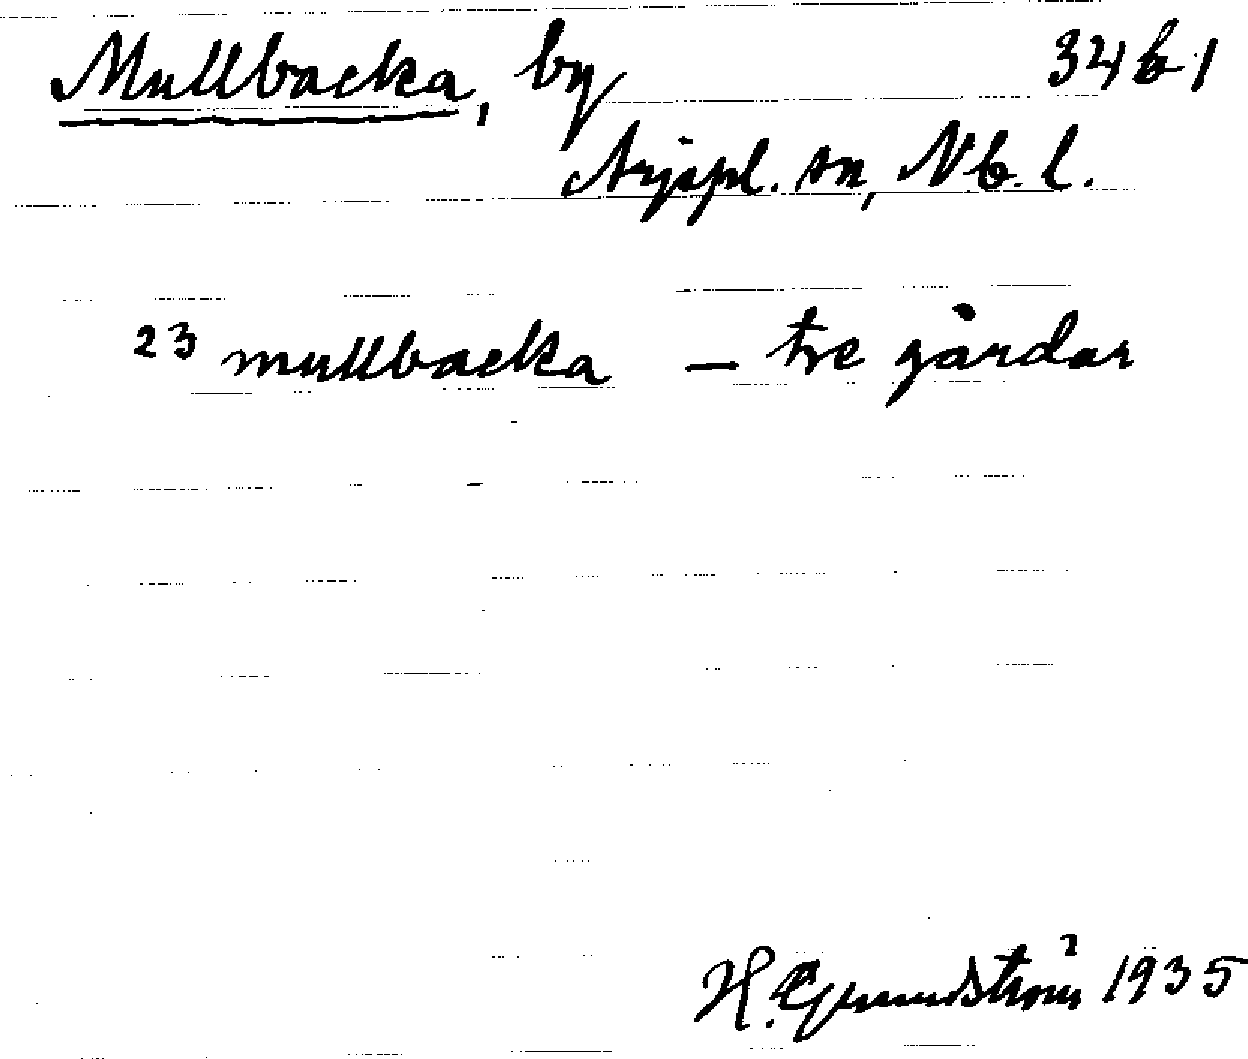 Mullbacka, by 34 b 1
Arjepl. sn, Nb. l.
23 mullbacka — tre gårdar
H. Grundström 1935